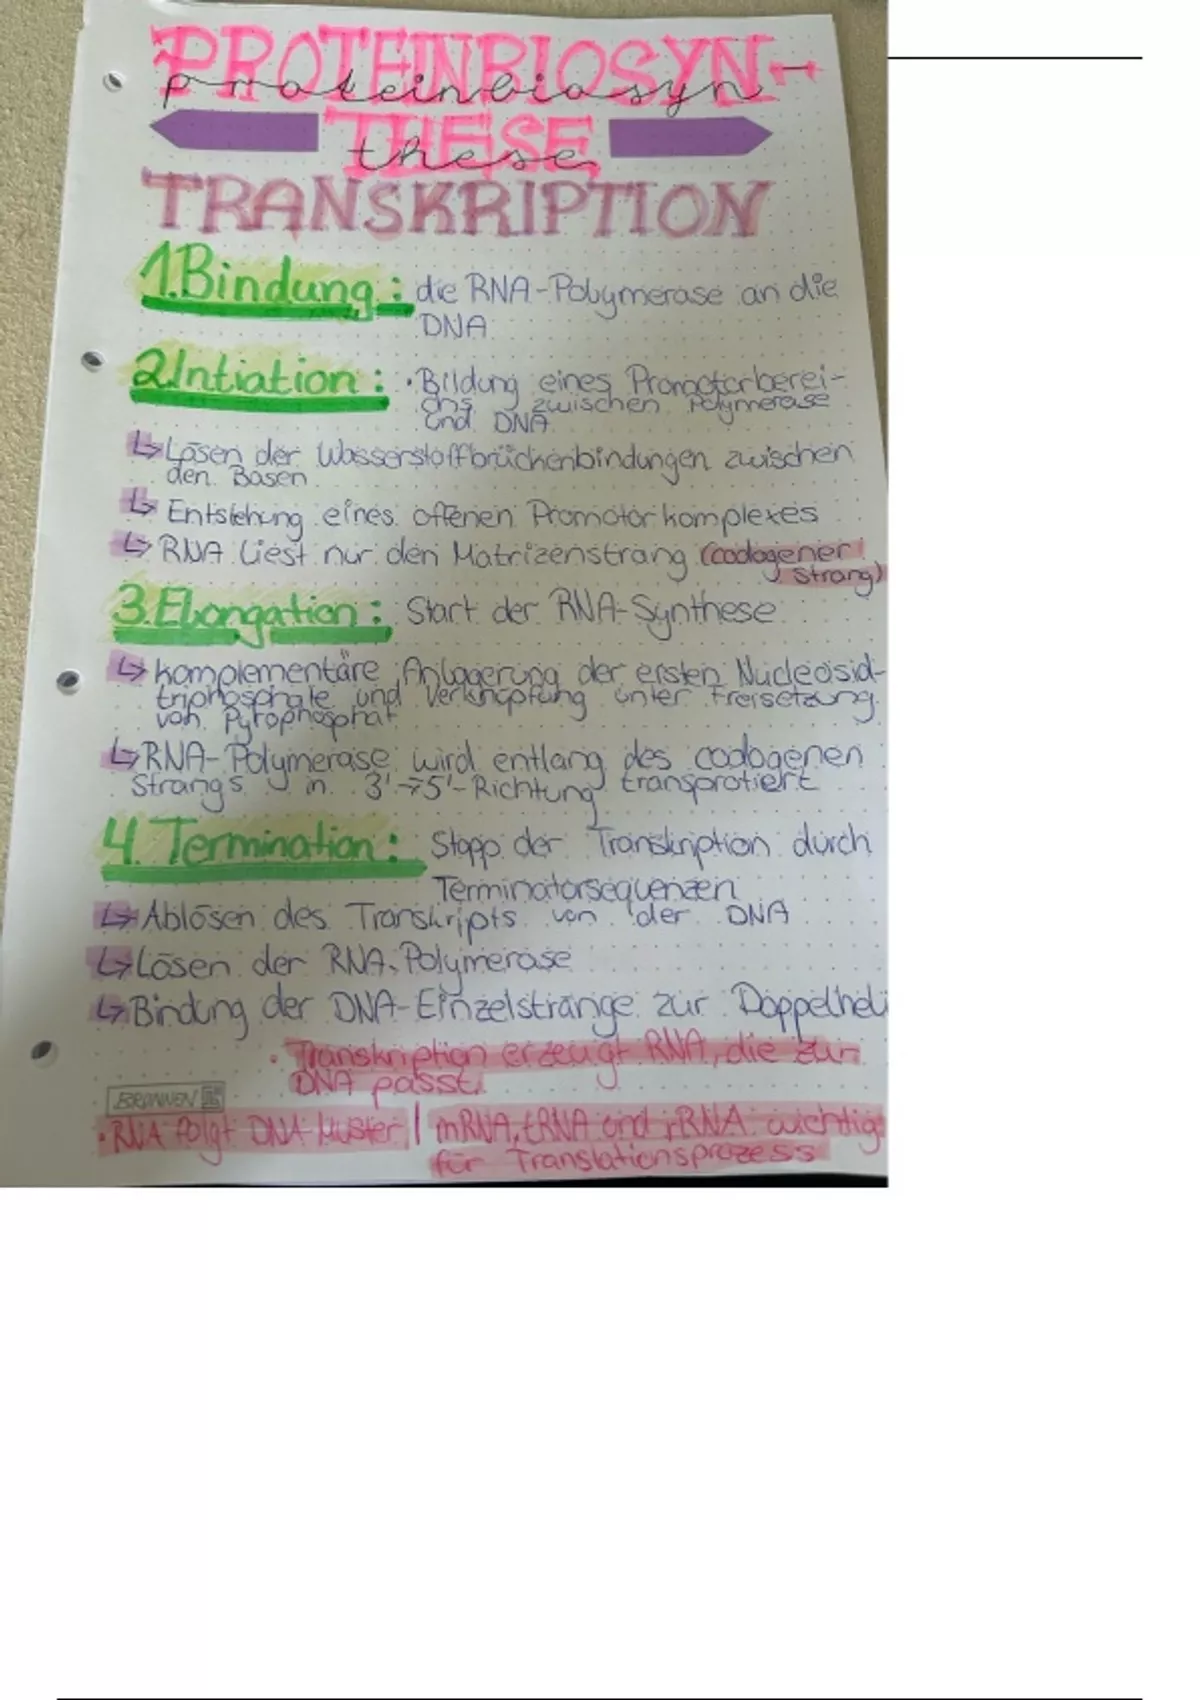 PROTEINBIOSYN-
proteinbiosyn
THESE
these
TRANSKRIPTION
1.Bindung: die RNA-Polymerase an die
DNA
2.Intiation: • Bildung eines Promotorberei-
chs zwischen Polymerase
und DNA
↳ Lösen der Wasserstoffbrückenbindungen zwischen
den Basen
↳ Entstehung eines offenen Promotorkomplexes
↳ RNA liest nur den Matrizenstrang (codogener
Strang)
3.Elongation: Start der RNA-Synthese
↳ komplementäre Anlagerung der ersten Nucleosid-
triphosphate und Verknüpfung unter Freisetzung
von Pyrophosphat
↳ RNA-Polymerase wird entlang des codogenen
Strangs in 3'→5'-Richtung transprotiert
4. Termination: Stopp der Transkription durch
Terminatorsequenzen
↳ Ablösen des Transkripts von der DNA
↳ Lösen der RNA-Polymerase
↳ Bindung der DNA-Einzelstränge zur Doppelheli
• Transkription erzeugt RNA, die zur
DNA passt.
BRUNNEN
• RNA folgt DNA Muster | mRNA, tRNA und rRNA wichtig
für Translationsprozess